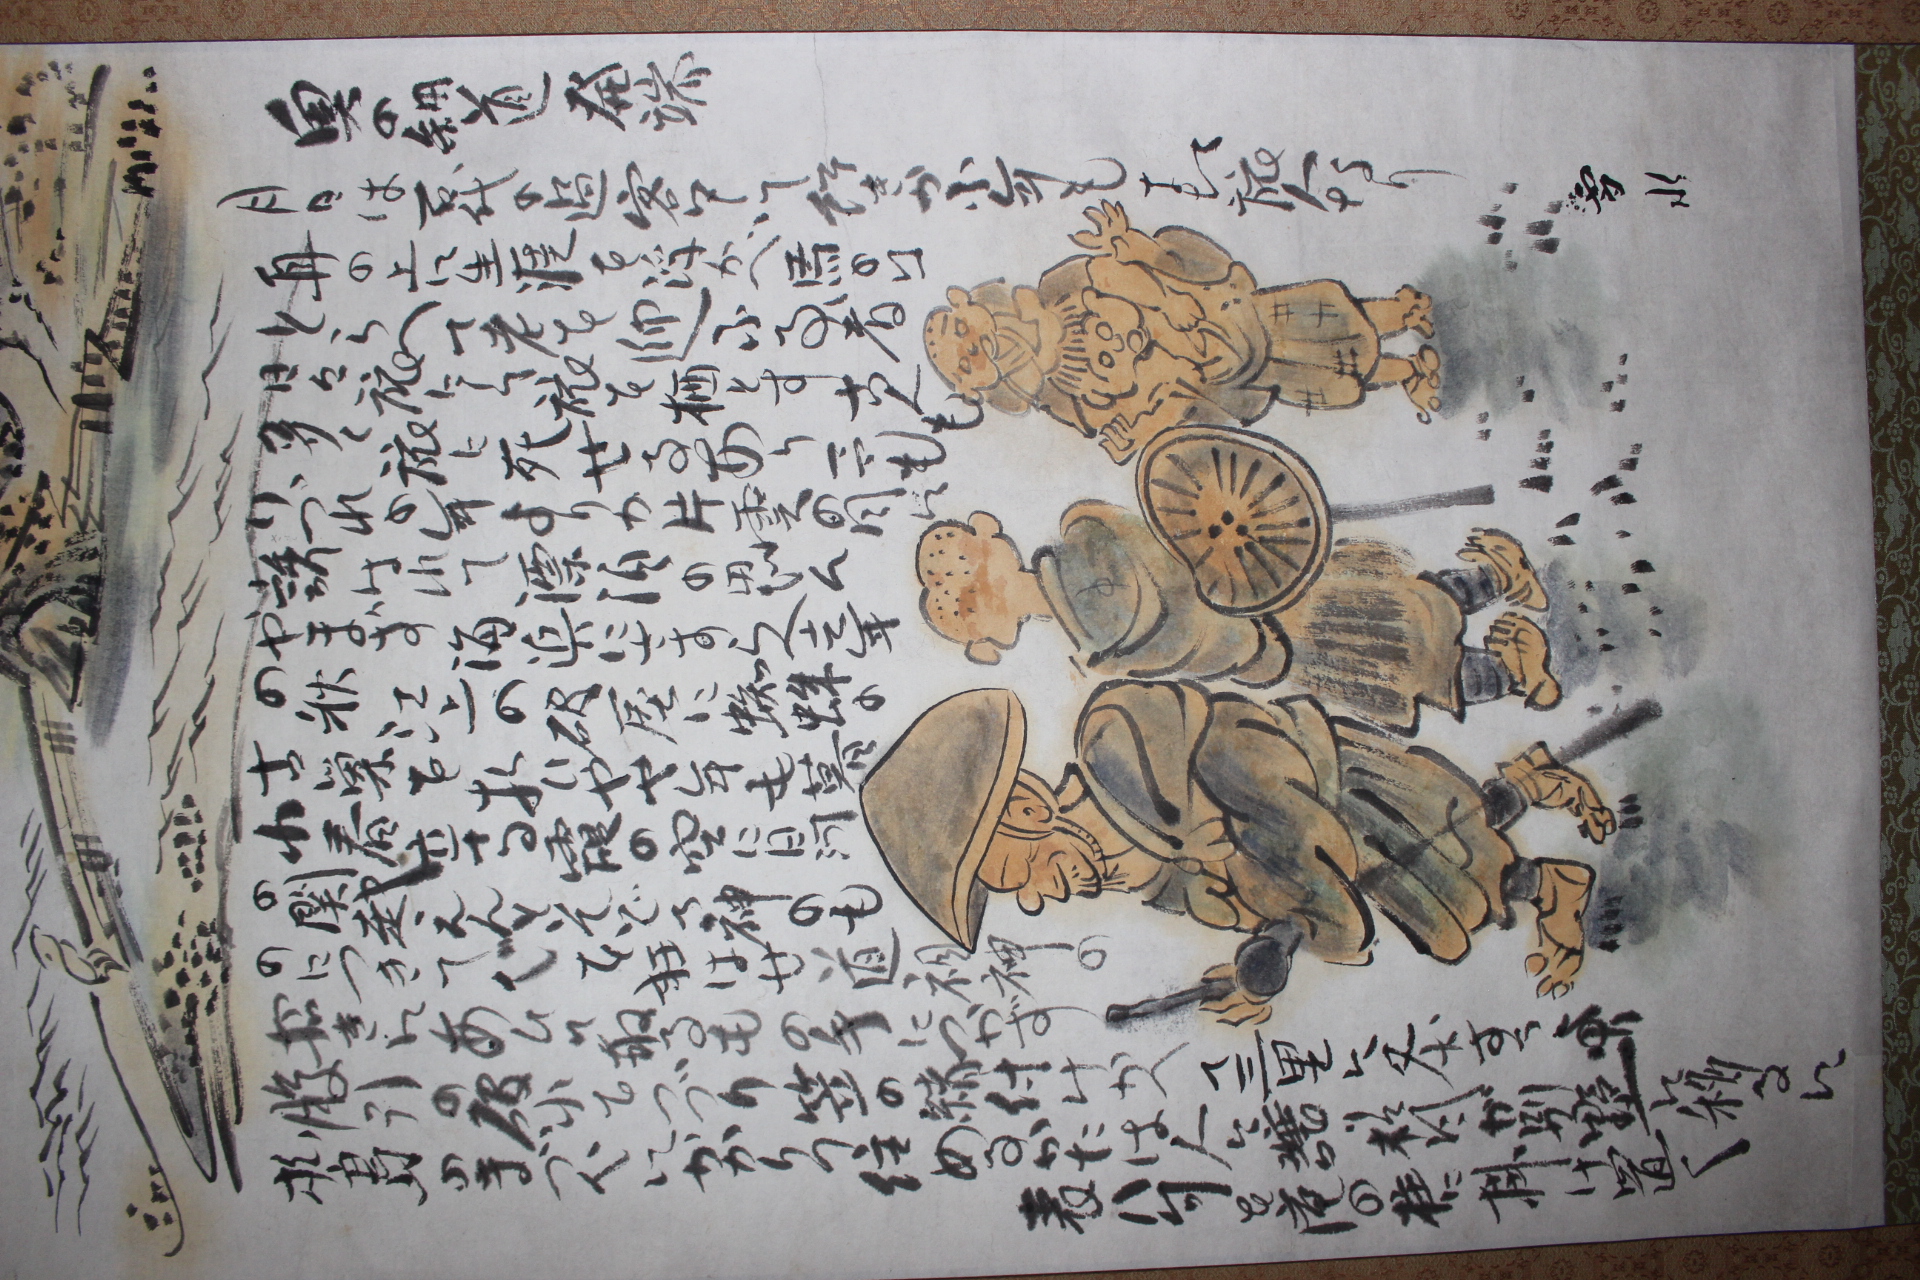 奥の細道 発端
月日は百代の過客にして行きかふ年もまた旅人なり
舟の上に生涯を浮かべ馬の口
とらへて老を迎ふる者は
日々旅にして旅を栖とす古人も
多く旅に死せるあり予も
いづれの年よりか片雲の風に
誘はれて漂泊の思ひ
やまず海浜にさすらへ去年
の秋江上の破屋に蜘蛛の
古巣を払ひやや年も暮
春立てる霞の空に白河
の関越えんとそぞろ神のも
のにつきて心を狂はせ道祖神の
招きにあひて取るもの手につかず
股引の破れをつづり笠の緒付けかへて三里に灸すゑるより
松島の月まづ心にかかりて住めるかたは人に譲り杉風が別墅に移るに
表八句を庵の柱に掛け置く